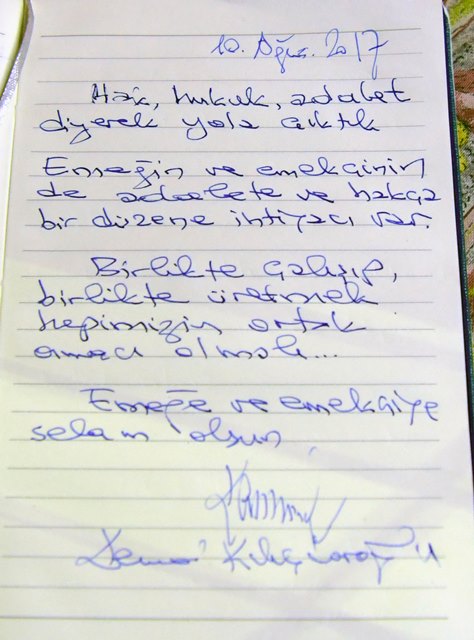 10. Ağus. 2017
Hak, hukuk, adalet
diyerek yola çıktık
Emeğin ve emekçinin
de adalete ve hakça
bir düzene ihtiyacı var.
Birlikte çalışıp,
birlikte üretmek
hepimizin ortak
amacı olmalı...
Emeğe ve emekçiye
selam olsun
Kemal Kılıçdaroğlu